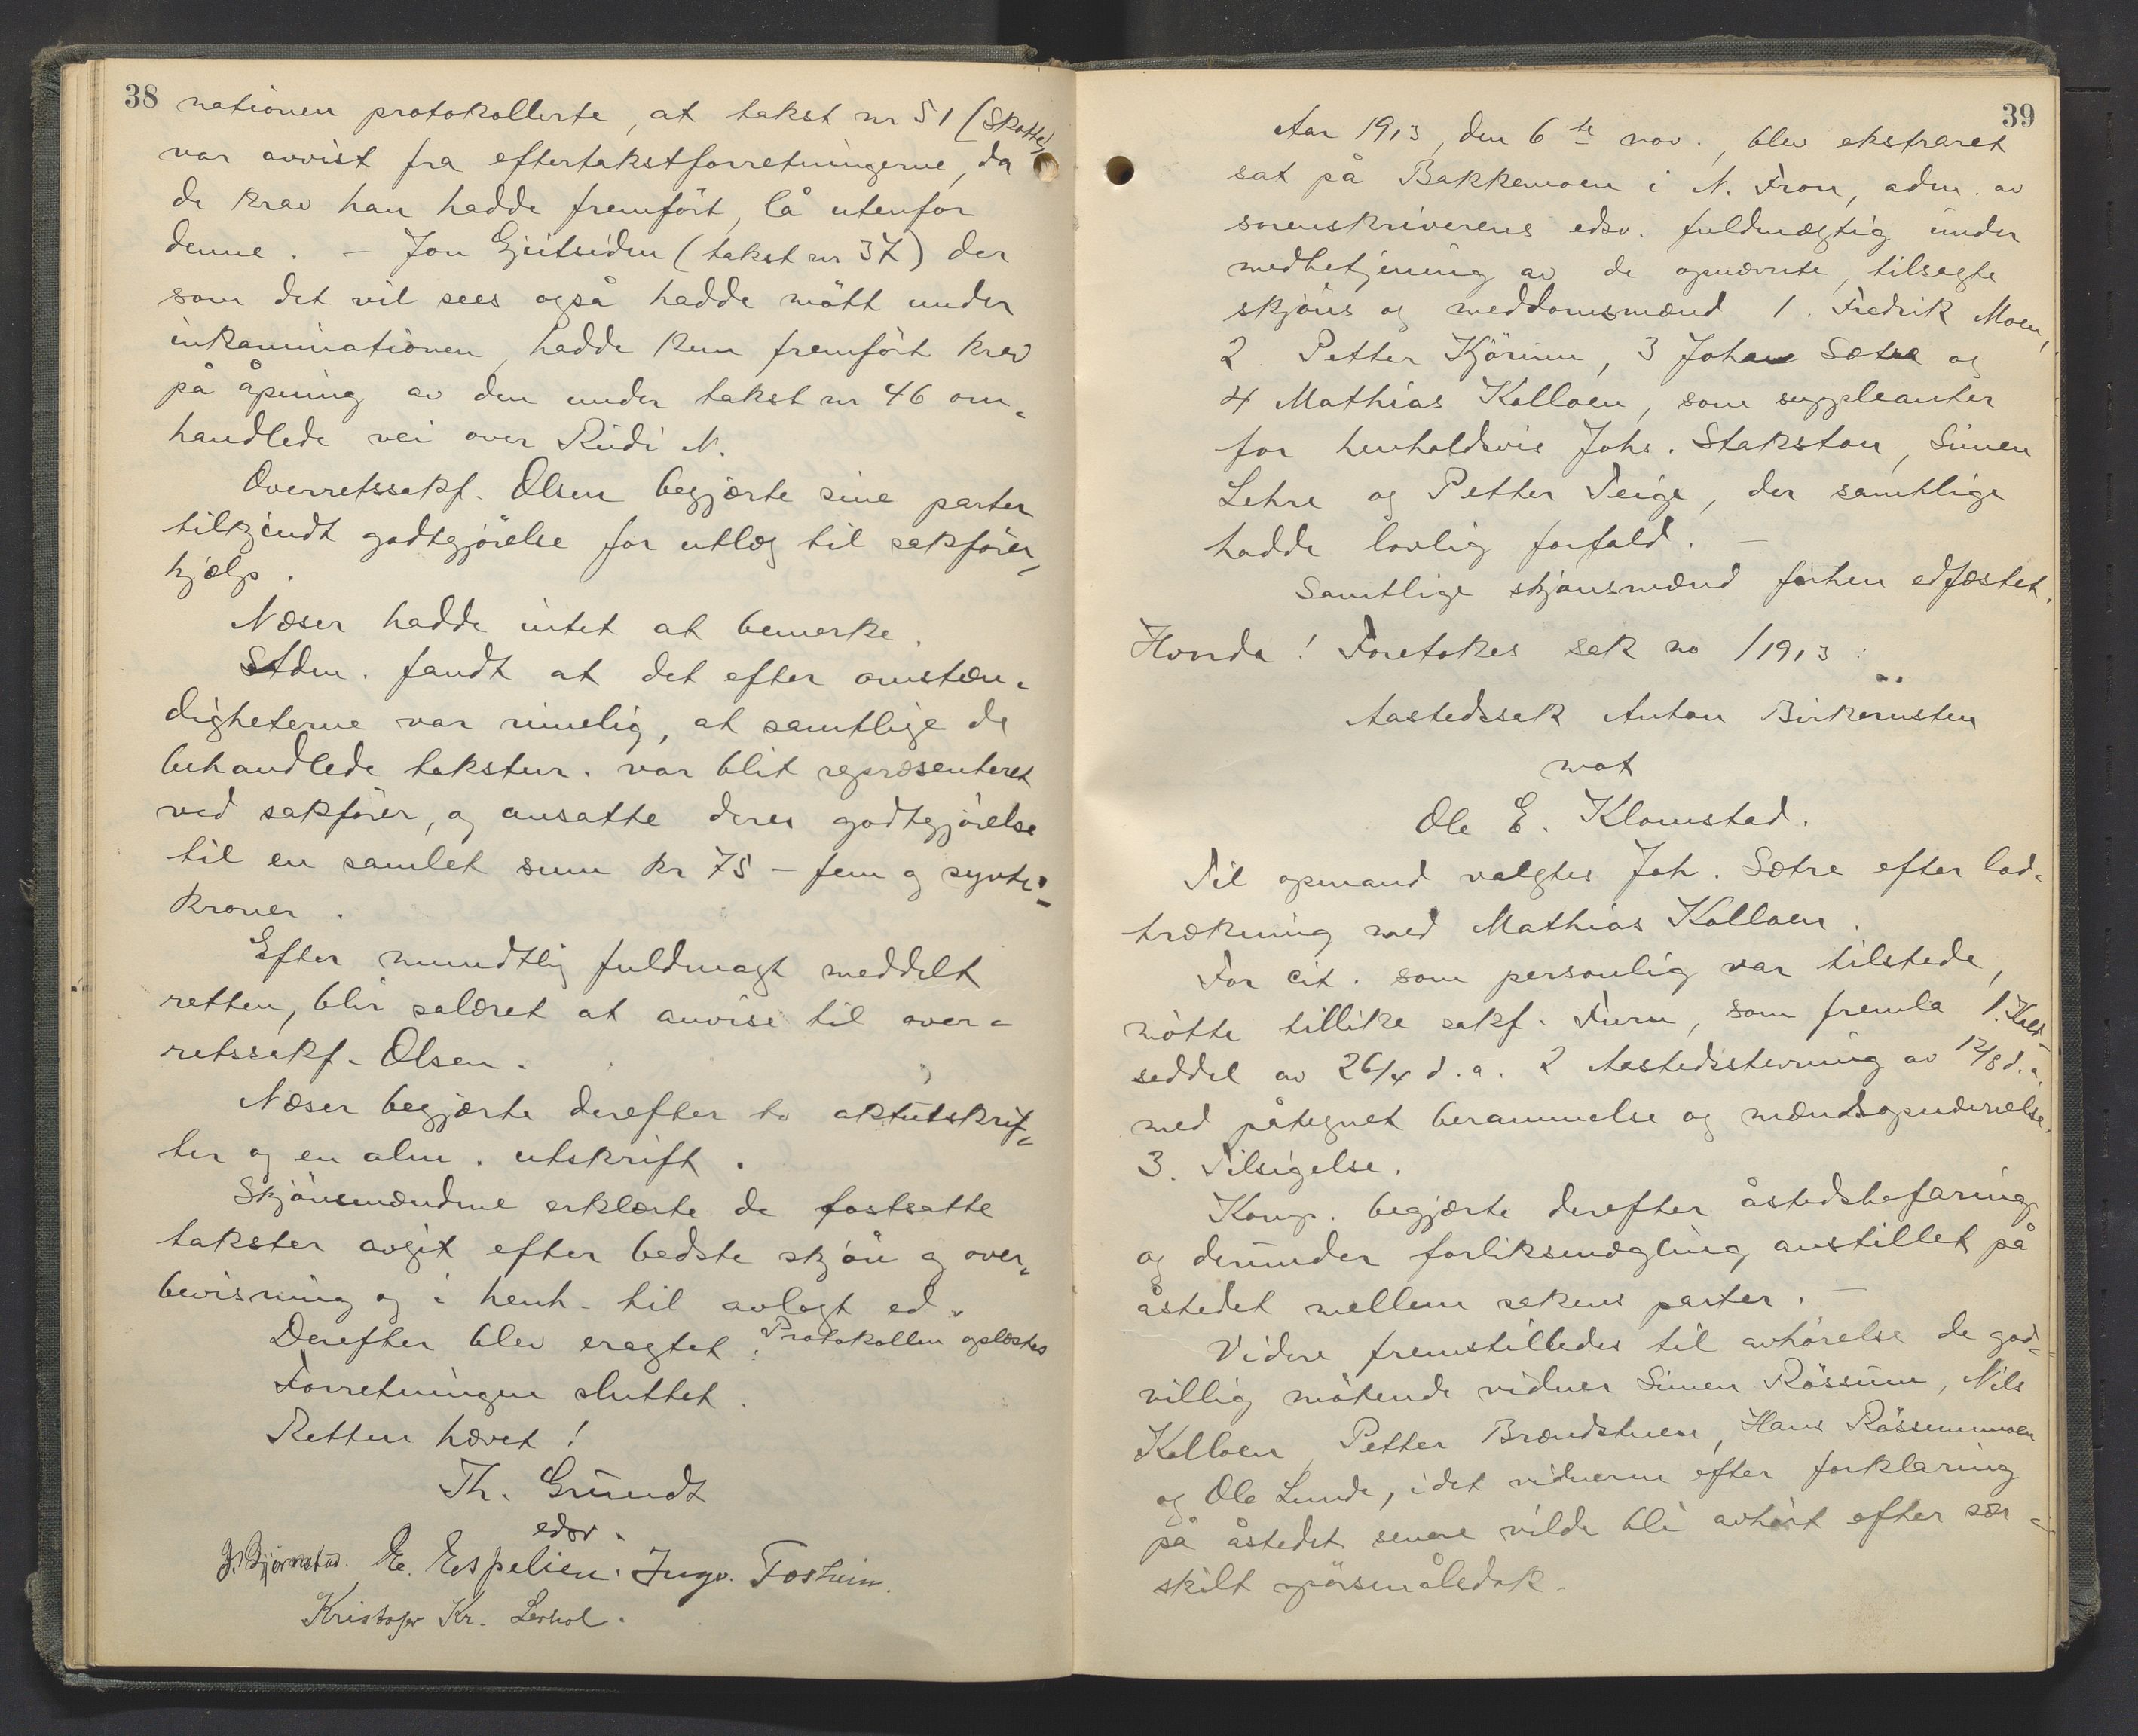 38
nationen protokollerte, at takst nr 51 (Skotte)
var avvist fra eftertakstforretningerne, da
de krav han hadde fremført, lå utenfor
denne. – Jon Gjeitsiden (takst nr 37) der
som det vil sees også hadde møtt under
inkaminationen, hadde kun fremført krav
på åpning av den under takst nr 46 om-
handlede vei over Rudi N.
Overretssakf. Olsen begjærte sine parter
tilkjendt godtgjörelse for utlæg til sakförer-
hjælp.
Næser hadde intet at bemerke.
Adm. fandt at det efter omstæn-
digheterne var rimelig, at samtlige de
behandlede takstnr. var blit repræsenteret
ved sakförer, og ansatte deres godtgjörelse
til en samlet sum kr 75 – fem og sytti –
kroner.
Efter mundtlig fuldmagt meddelt
retten, blir salæret at anvise til over-
retssakf. Olsen.
Næser begjærte derefter to aktutskrif-
ter og en alm. utskrift.
Skjönsmændene erklærte de fastsatte
takster avgit efter bedste skjön og over-
bevisning og i henh. til avlagt ed.
Derefter blev eragtet: Protokollen oplæstes
Forretningen sluttet.
Retten hævet!
Th. Grundt
edsv.
J. Bjørnstad. E. Espelien. Ingv. Fosheim.
Kristofer Kr. Lerhol.
39
Aar 1913, den 6te nov., blev ekstraret
sat på Bakkemoen i N. Fron, adm. av
sorenskriverens edsv. fuldmægtig under
medbetjening av de opnævnte, tilsagte
skjöns og meddomsmænd 1. Fredrik Moen,
2. Petter Kjörum, 3 Johan Sætre og
4 Mathias Kolloen, som suppleanter
for henholdsvis Johs. Stakston, Simen
Lehre og Petter Teige, der samtlige
hadde lovlig forfald. –
Samtlige skjönsmænd forhen edfæstet.
Hvorda! Foretokes sak no /1913:
Aastedssak Anton Birkerusten
mot
Ole E. Klomstad.
Til opmand valgtes Joh. Sætre efter lod-
trækning med Mathias Kolloen.
For cit. som personlig var tilstede,
mötte tillike sakf. Furu, som fremla 1. Kald-
seddel av 26/4 d.a. 2 Aastedsstevning av 12/8 d.a.
med påtegnet berammelse og mændsopnævnelse.
3. Tilsigelse.
Komp. begjærte derefter åstedsbefaring
og derunder forliksmægling anstillet på
åstedet mellem sakens parter. –
Videre fremstilledes til avhörelse de god-
villig mötende vidner Simen Rössum, Nils
Kolloen, Petter Brændstuen, Hans Rössummoen
og Ole Lunde, idet vidnerne efter forklaring
på åstedet senere vilde bli avhört efter sær-
skilt spörsmålsdok.